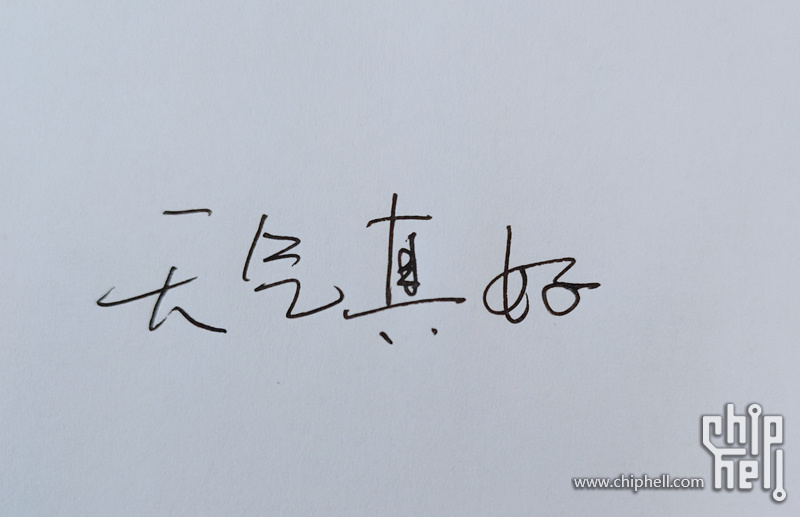 天气真好
chip
hell
www.chiphell.com